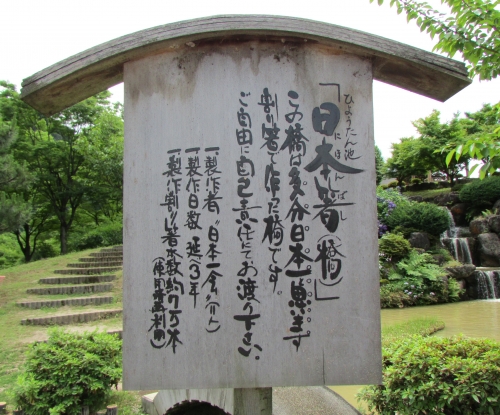 ひょうたん池
「日本箸(橋)」
にほんばし
この橋は多分日本一ます
割り箸で作った橋です。
ご自由に自己責任にてお渡り下さい。
一製作者"日本一会"
一製作日数 延3年
一製作割り箸本数約7万本
(使用済再利用)